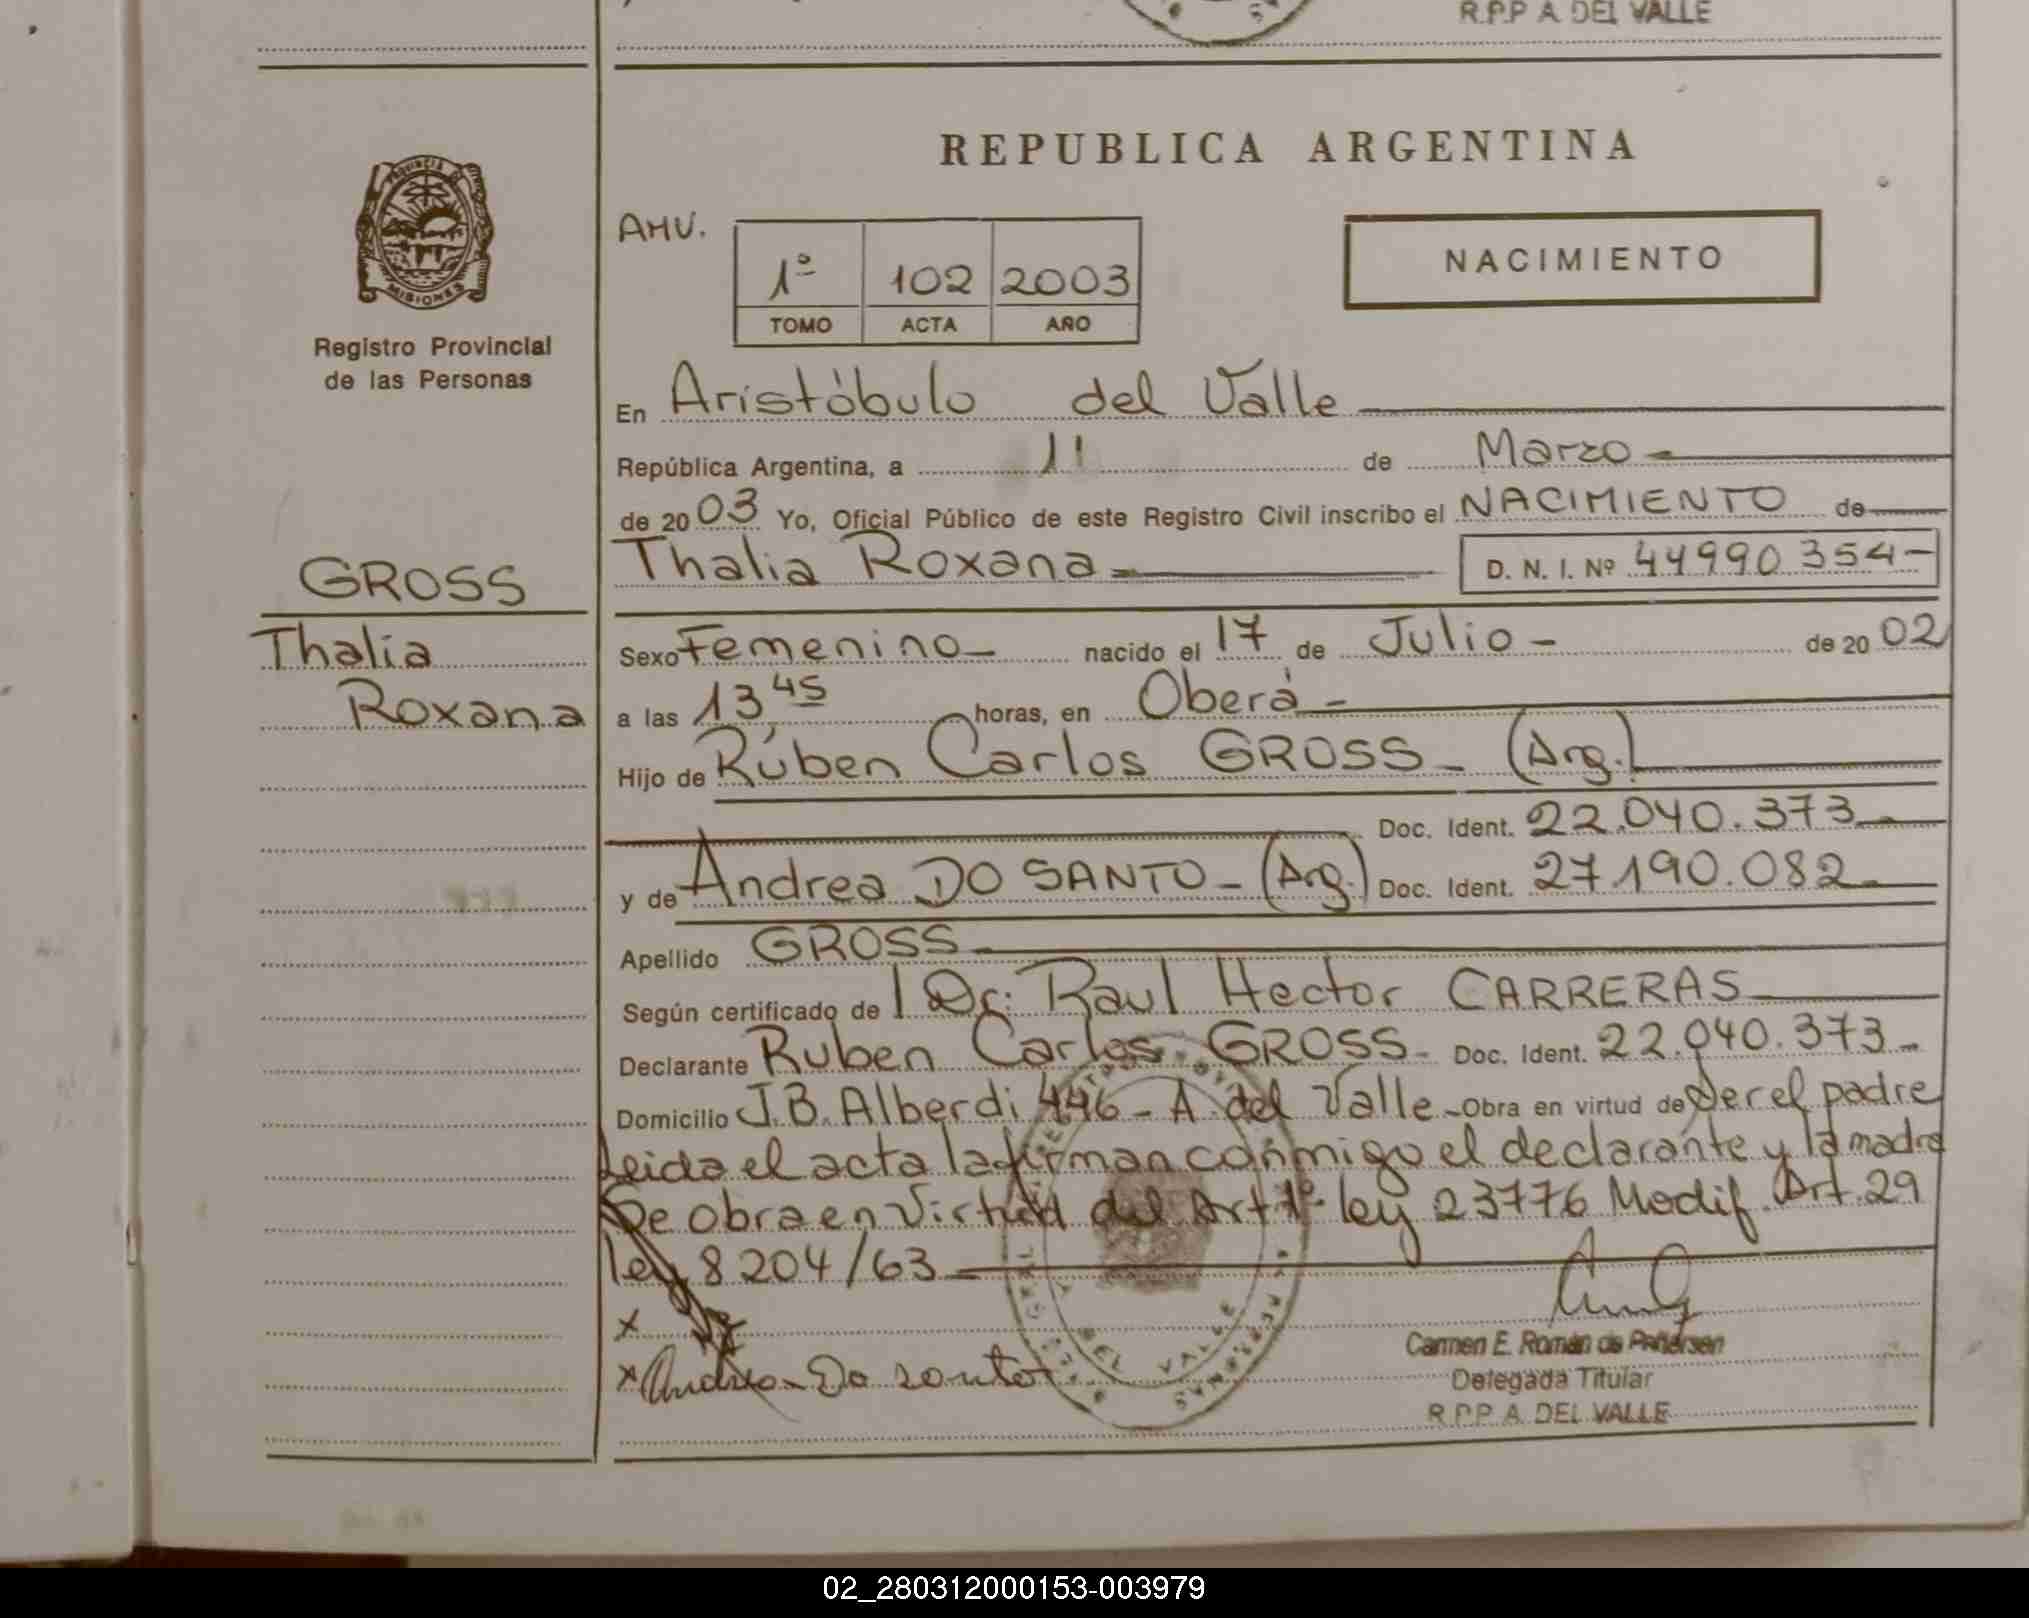 R.P.P A. DEL VALLE
PROVINCIA DE
MISIONES
Registro Provincial
de las Personas
GROSS
Thalia
Roxana
REPUBLICA ARGENTINA
AMU.
1º 102 2003
TOMO ACTA AÑO
NACIMIENTO
En Aristóbulo del Valle
República Argentina, a 11 de Marzo
de 2003 Yo, Oficial Público de este Registro Civil inscribo el NACIMIENTO de
Thalia Roxana D. N. I. Nº 44990354-
Sexo Femenino nacido el 17 de Julio - de 2002
a las 13,45 horas, en Oberá -
Hijo de Rúben Carlos GROSS - (Arg.)
Doc. Ident. 22.040.373
y de Andrea DO SANTO - (Arg.) Doc. Ident. 27.190.082
Apellido GROSS
Según certificado de Dr. Raul Hector CARRERAS
Declarante Ruben Carlos GROSS - Doc. Ident. 22.040.373-
Domicilio J.B. Alberdi 446 - A. del Valle - Obra en virtud de Ser el padre
Leida el acta la firman conmigo el declarante y la madre
Se obra en Virtud del Art 1º ley 23776 Modif. Art. 29
ley 8204/63
x
x Andrea Do santo
DEL VALLE
PERSONAS
Carmen E. Román de Pedersen
Delegada Titular
R.P.P A. DEL VALLE
02_280312000153-003979